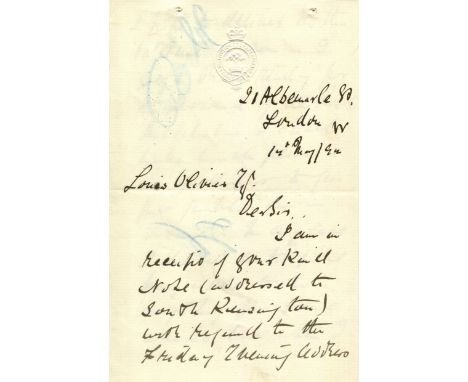 21 Albemarle St.
London W
May/92
Louis Olivier Esq.
Dear Sir.
I am in
receipt of your kind
Note (addressed to
South Kensington)
with regard to the
Friday Evening Address